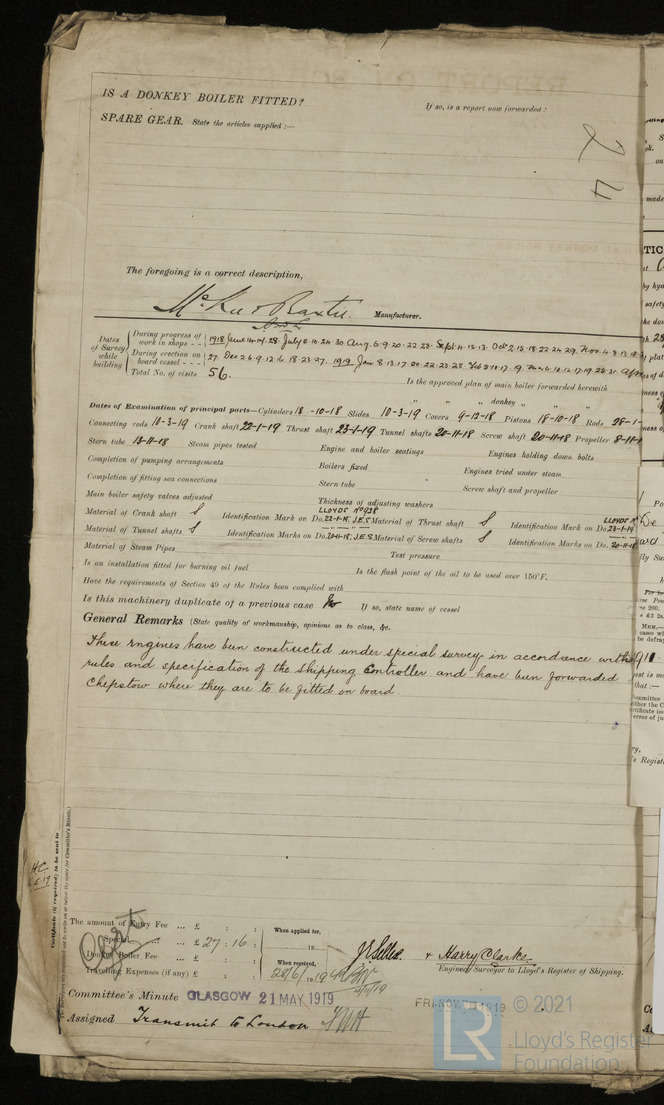 IS A DONKEY BOILER FITTED? If so, is a report now forwarded?
SPARE GEAR. State the articles supplied:—
The foregoing is a correct description,
McKie & Baxter Manufacturer.
Dates of Survey while building
During progress of work in shops - - 1918 June 14. 28 July 8. 10. 24. 30 Aug. 6. 9. 20. 22. 23. Sept. 4. 12. 13. Oct 2. 15. 18. 22. 24. 29. Nov. 4. 8. 13. 18.
During erection on board vessel - - - 27. Dec 2. 6. 9. 12. 16. 18. 23. 27. 1919 Jan 8. 13. 17. 20. 22. 23. 28
Total No. of visits 56.
Is the approved plan of main boiler forwarded herewith
" " " donkey " " "
Dates of Examination of principal parts—Cylinders 18-10-18 Slides 10-3-19 Covers 9-12-18 Pistons 18-10-18 Rods 28-1-
Connecting rods 10-3-19 Crank shaft 22-1-19 Thrust shaft 23-1-19 Tunnel shafts 20-11-18 Screw shaft 20-11-18 Propeller 8-11-
Stern tube 13-11-18 Steam pipes tested Engine and boiler seatings Engines holding down bolts
Completion of pumping arrangements Boilers fixed Engines tried under steam
Completion of fitting sea connections Stern tube Screw shaft and propeller
Main boiler safety valves adjusted Thickness of adjusting washers
LLOYDS No 928
Material of Crank shaft S Identification Mark on Do. 22-1-19. J.E.S. Material of Thrust shaft S Identification Mark on Do. 23-1-19
Material of Tunnel shafts S Identification Marks on Do. 20-11-18. J.E.S. Material of Screw shafts S Identification Marks on Do. 20-11-18
Material of Steam Pipes Test pressure
Is an installation fitted for burning oil fuel Is the flash point of the oil to be used over 150°F.
Have the requirements of Section 49 of the Rules been complied with
Is this machinery duplicate of a previous case No If so, state name of vessel
General Remarks (State quality of workmanship, opinions as to class, &c.
These engines have been constructed under special survey in accordance with
rules and specification of the Shipping Controller and have been forwarded
Chepstow where they are to be fitted on board
Certificate (if required) to be sent to
The amount of Entry Fee ... £ : : When applied for,
Special ... £ 27 : 16 : 19
Donkey Boiler Fee ... £ : : When received,
Travelling Expenses (if any) £ : : 28/6/1919
& Harry Clarke
Engineer Surveyor to Lloyd's Register of Shipping.
Committee's Minute GLASGOW 21 MAY 1919 FRI. NOV. 7 1919
Assigned Transmit to London
© 2021
LR
Lloyd's Register
Foundation